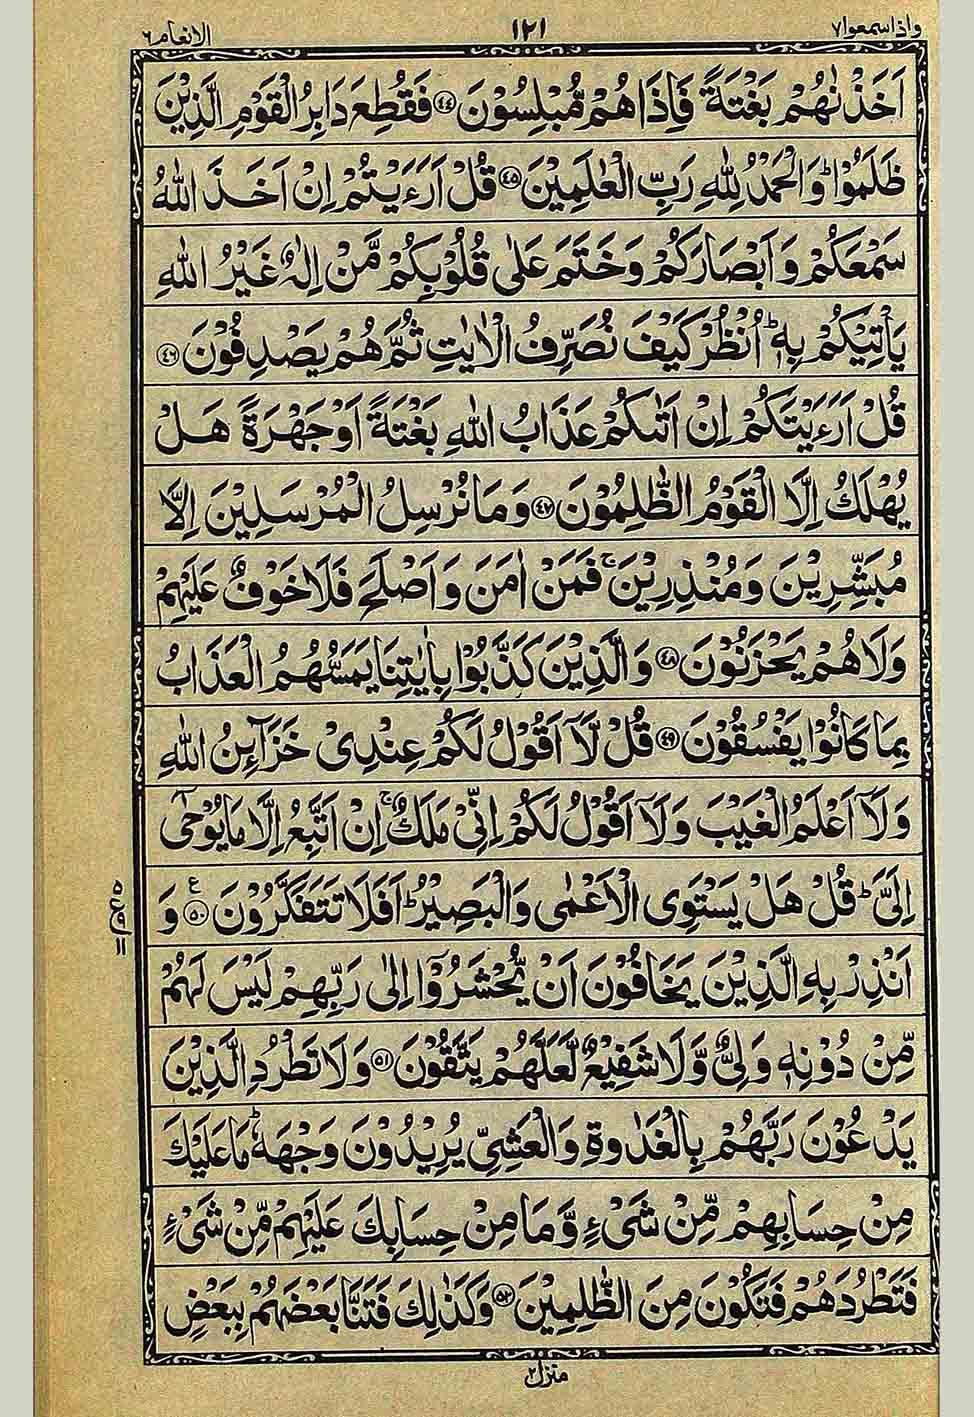 واذاسمعوا٧ ١٢١ الانعام٦
اَخَذْنٰهُمْ بَغْتَةً فَاِذَا هُمْ مُّبْلِسُوْنَ ﴿٤٤﴾ فَقُطِعَ دَابِرُ الْقَوْمِ الَّذِيْنَ
ظَلَمُوْا ؕ وَالْحَمْدُ لِلّٰهِ رَبِّ الْعٰلَمِيْنَ ﴿٤٥﴾ قُلْ اَرَءَيْتُمْ اِنْ اَخَذَ اللّٰهُ
سَمْعَكُمْ وَاَبْصَارَكُمْ وَخَتَمَ عَلٰى قُلُوْبِكُمْ مَّنْ اِلٰهٌ غَيْرُ اللّٰهِ
يَاْتِيْكُمْ بِهٖ ؕ اُنْظُرْ كَيْفَ نُصَرِّفُ الْاٰيٰتِ ثُمَّ هُمْ يَصْدِفُوْنَ ﴿٤٦﴾
قُلْ اَرَءَيْتَكُمْ اِنْ اَتٰىكُمْ عَذَابُ اللّٰهِ بَغْتَةً اَوْ جَهْرَةً هَلْ
يُهْلَكُ اِلَّا الْقَوْمُ الظّٰلِمُوْنَ ﴿٤٧﴾ وَمَا نُرْسِلُ الْمُرْسَلِيْنَ اِلَّا
مُبَشِّرِيْنَ وَمُنْذِرِيْنَ ۚ فَمَنْ اٰمَنَ وَاَصْلَحَ فَلَا خَوْفٌ عَلَيْهِمْ
وَلَا هُمْ يَحْزَنُوْنَ ﴿٤٨﴾ وَالَّذِيْنَ كَذَّبُوْا بِاٰيٰتِنَا يَمَسُّهُمُ الْعَذَابُ
بِمَا كَانُوْا يَفْسُقُوْنَ ﴿٤٩﴾ قُلْ لَّاۤ اَقُوْلُ لَكُمْ عِنْدِىْ خَزَآئِنُ اللّٰهِ
وَلَاۤ اَعْلَمُ الْغَيْبَ وَلَاۤ اَقُوْلُ لَكُمْ اِنِّىْ مَلَكٌ ۚ اِنْ اَتَّبِعُ اِلَّا مَا يُوْحٰۤى
اِلَىَّ ؕ قُلْ هَلْ يَسْتَوِى الْاَعْمٰى وَالْبَصِيْرُ ؕ اَفَلَا تَتَفَكَّرُوْنَ ﴿٥٠﴾ ع وَ
اَنْذِرْ بِهِ الَّذِيْنَ يَخَافُوْنَ اَنْ يُّحْشَرُوْۤا اِلٰى رَبِّهِمْ لَيْسَ لَهُمْ
مِّنْ دُوْنِهٖ وَلِىٌّ وَّلَا شَفِيْعٌ لَّعَلَّهُمْ يَتَّقُوْنَ ﴿٥١﴾ وَلَا تَطْرُدِ الَّذِيْنَ
يَدْعُوْنَ رَبَّهُمْ بِالْغَدٰوةِ وَالْعَشِىِّ يُرِيْدُوْنَ وَجْهَهٗ ؕ مَا عَلَيْكَ
مِنْ حِسَابِهِمْ مِّنْ شَىْءٍ وَّمَا مِنْ حِسَابِكَ عَلَيْهِمْ مِّنْ شَىْءٍ
فَتَطْرُدَهُمْ فَتَكُوْنَ مِنَ الظّٰلِمِيْنَ ﴿٥٢﴾ وَكَذٰلِكَ فَتَنَّا بَعْضَهُمْ بِبَعْضٍ
منزل٢